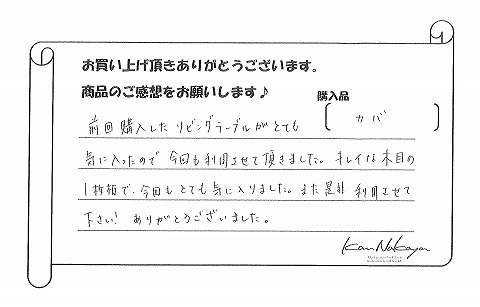 お買い上げ頂きありがとうございます。
商品のご感想をお願いします♪
購入品
カバ
前回購入したリビングテーブルがとても
気に入ったので今回も利用させて頂きました。キレイな木目の
1枚板で、今回もとても気に入りました。また是非利用させて
下さい! ありがとうございました。